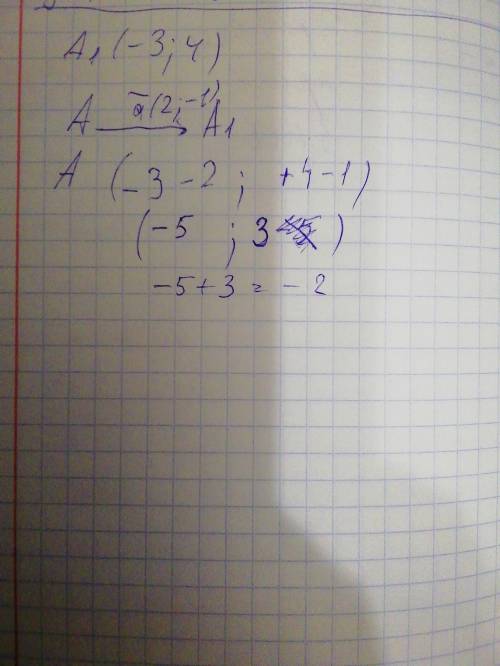 A₁ (-3; 4)
A ā(2; -1) → A₁
A (-3 - 2 ; +4 - 1)
(-5 ; 3 )
-5 + 3 = - 2